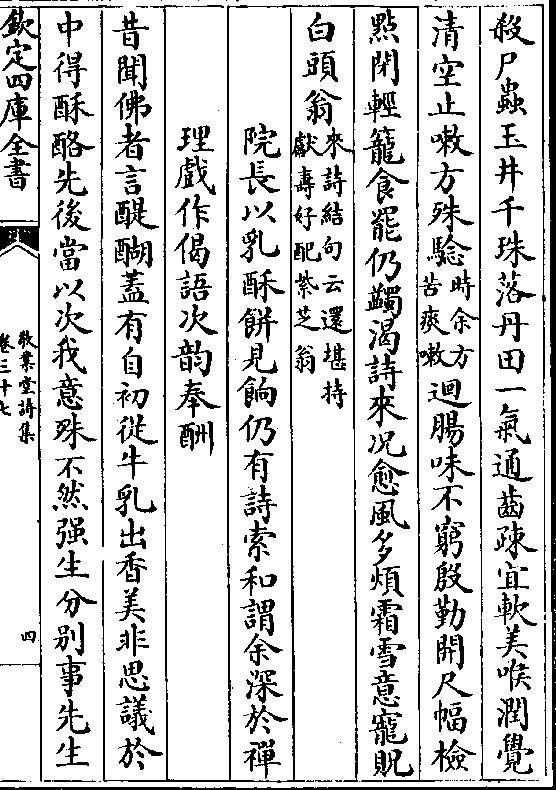 殺尸蟲玉井千珠落丹田一氣通齒疎宜軟美喉潤覺
清空止嗽方殊驗時余方苦痰嗽迴腸味不窮殷勤開尺幅檢
點閉輕籠食罷仍蠲渴詩來况愈風多煩霜雪意寵貺
白頭翁來詩結句云還堪持獻壽好配紫芝翁
院長以乳酥餅見餉仍有詩索和謂余深於禪
理戲作偈語次韵奉酬
昔聞佛者言醍醐蓋有自初從牛乳出香美非思議於
中得酥酪先後當以次我意殊不然强生分别事先生
欽定四庫全書
敬業堂詩集
卷三十七
四